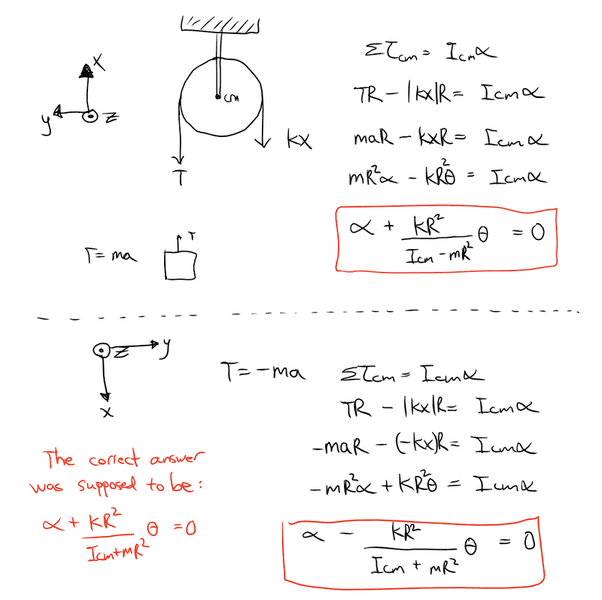 x
y
z
cm
T
kx
ΣτCM = Icmα
TR − |kx|R = Icmα
maR − kxR = Icmα
mR²α − kR²θ = Icmα
α + kR²/(Icm − mR²) θ = 0
T = ma
T
z
y
x
T = −ma
Στcm = Icmα
TR − |kx|R = Icmα
−maR − (−kx)R = Icmα
−mR²α + kR²θ = Icmα
α − kR²/(Icm + mR²) θ = 0
The correct answer
was supposed to be:
α + kR²/(Icm+mR²) θ = 0